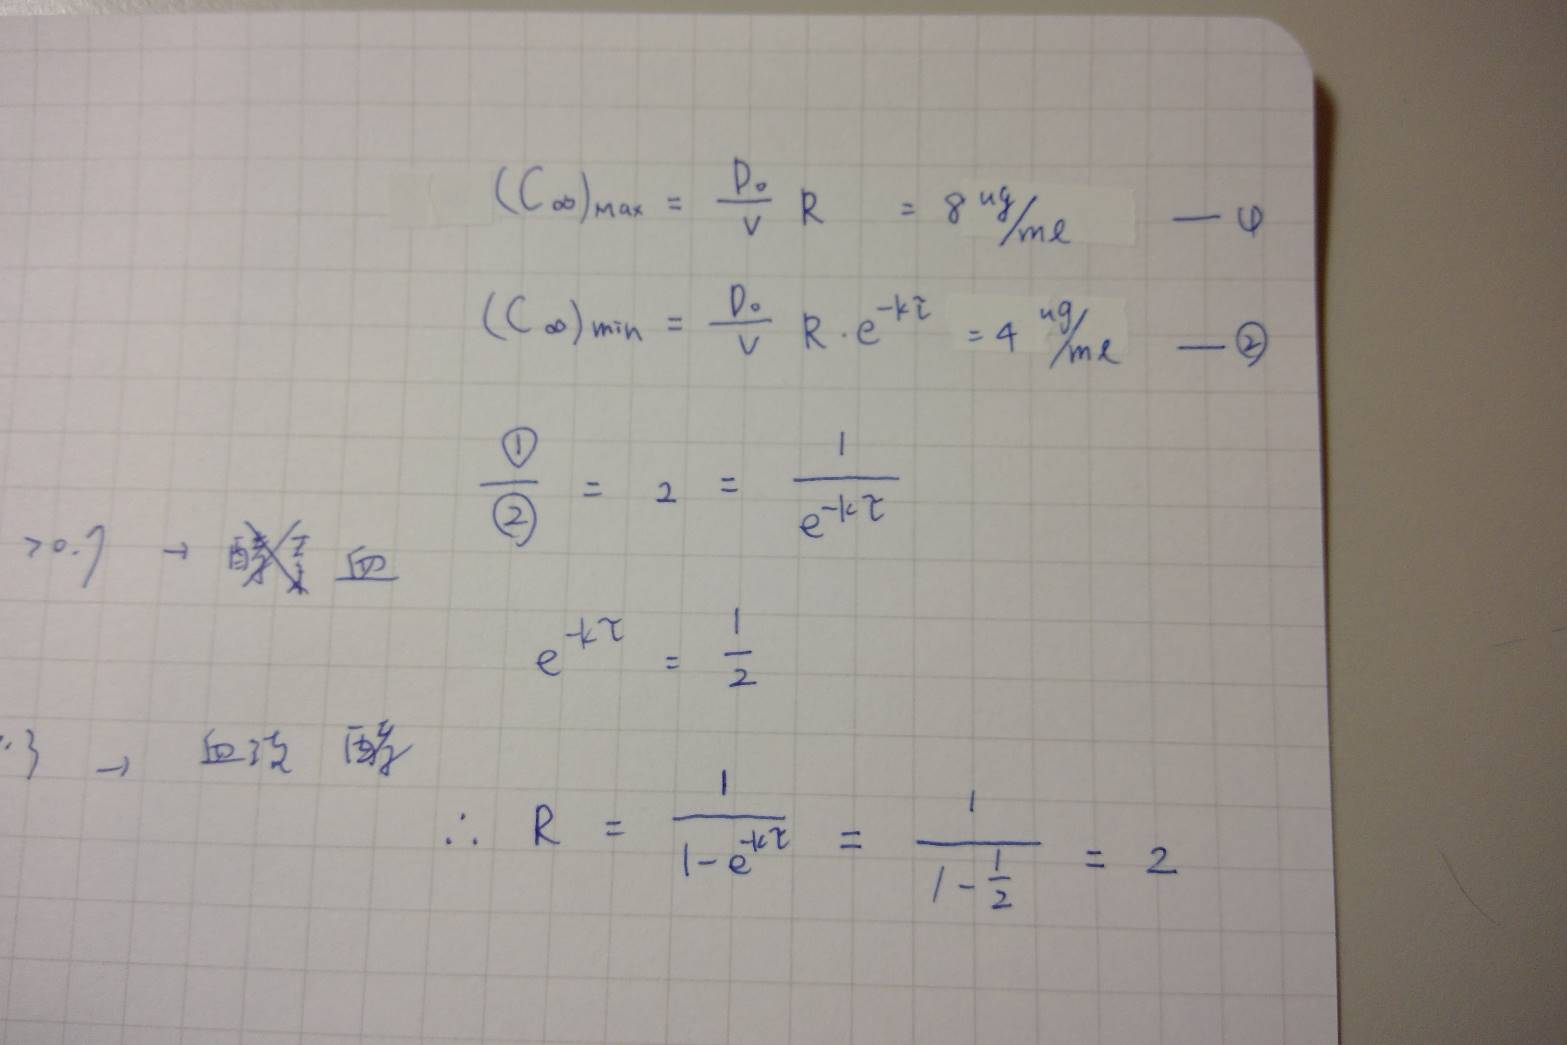 (C∞)max = D₀/V R = 8 ug/ml — ①
(C∞)min = D₀/V R · e^-kτ = 4 ug/ml — ②
①/② = 2 = 1/e^-kτ
>0.7 → 血
e^-kτ = 1/2
→ 血流 酵
∴ R = 1/(1-e^-kτ) = 1/(1-1/2) = 2